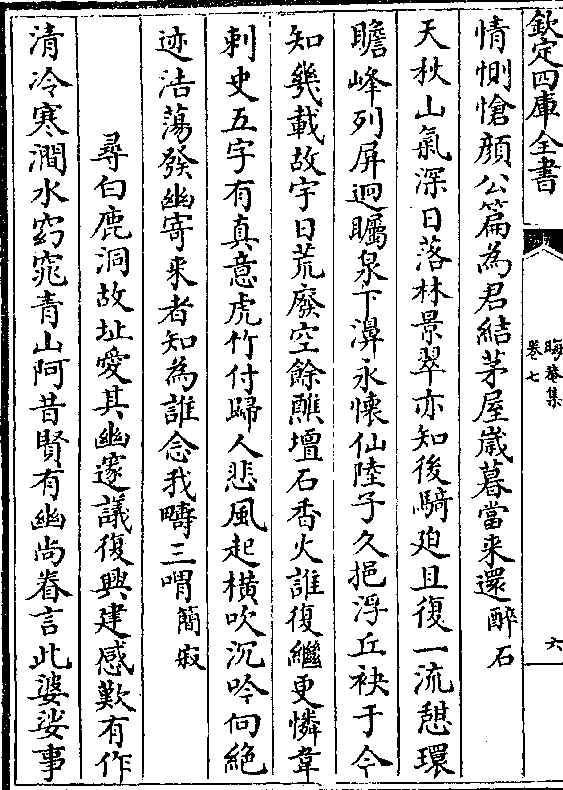 欽定四庫全書
晦菴集
卷七
六
情惻愴顔公篇為君結茅屋嵗暮當来還醉石
天秋山氣深日落林景翠亦知後騎廹且復一流憇環
瞻峰列屏迥矚泉下濞永懷仙陸子久挹浮丘袂于今
知幾載故宇日荒廢空餘醮壇石香火誰復繼更憐韋
刺史五字有真意虎竹付歸人悲風起橫吹沉吟向絶
迹浩蕩發幽寄来者知為誰念我疇三喟簡寂
尋白鹿洞故址愛其幽邃議復興建感歎有作
清冷寒澗水窈窕青山阿昔賢有幽尚眷言此婆娑事